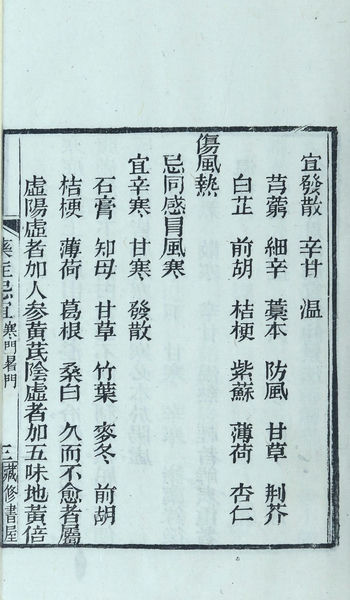 宜發散 辛甘 溫
芎藭 細辛 藁本 防風 甘草 荆芥
白芷 前胡 桔梗 紫蘇 薄荷 杏仁
傷風熱
忌同感冒風寒
宜辛寒 甘寒 發散
石膏 知母 甘草 竹葉 麥冬 前胡
桔梗 薄荷 葛根 桑白 久而不愈者屬
虛陽虛者加人參黃芪陰虛者加五味地黃倍
藥症忌宜 寒門暑門 三 藏修書屋